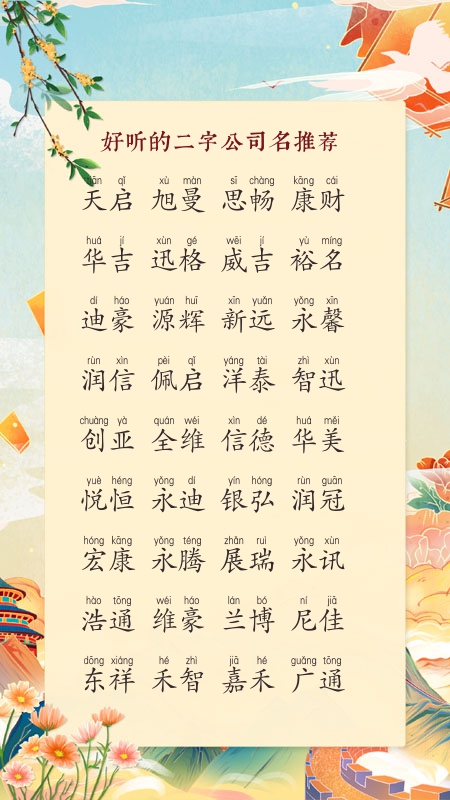 好听的二字公司名推荐
tiān qǐ xù màn sī chàng kāng cái
天启 旭曼 思畅 康财
huá jí xùn gé wēi jí yù míng
华吉 迅格 威吉 裕名
dí háo yuán huī xīn yuǎn yǒng xīn
迪豪 源辉 新远 永馨
rùn xìn pèi qǐ yáng tài zhì xùn
润信 佩启 洋泰 智迅
chuàng yà quán wéi xìn dé huá měi
创亚 全维 信德 华美
yuè héng yǒng dí yín hóng rùn guān
悦恒 永迪 银弘 润冠
hóng kāng yǒng téng zhǎn ruì yǒng xùn
宏康 永腾 展瑞 永讯
hào tōng wéi háo lán bó ní jiā
浩通 维豪 兰博 尼佳
dōng xiáng hé zhì jiā hé guǎng tōng
东祥 禾智 嘉禾 广通